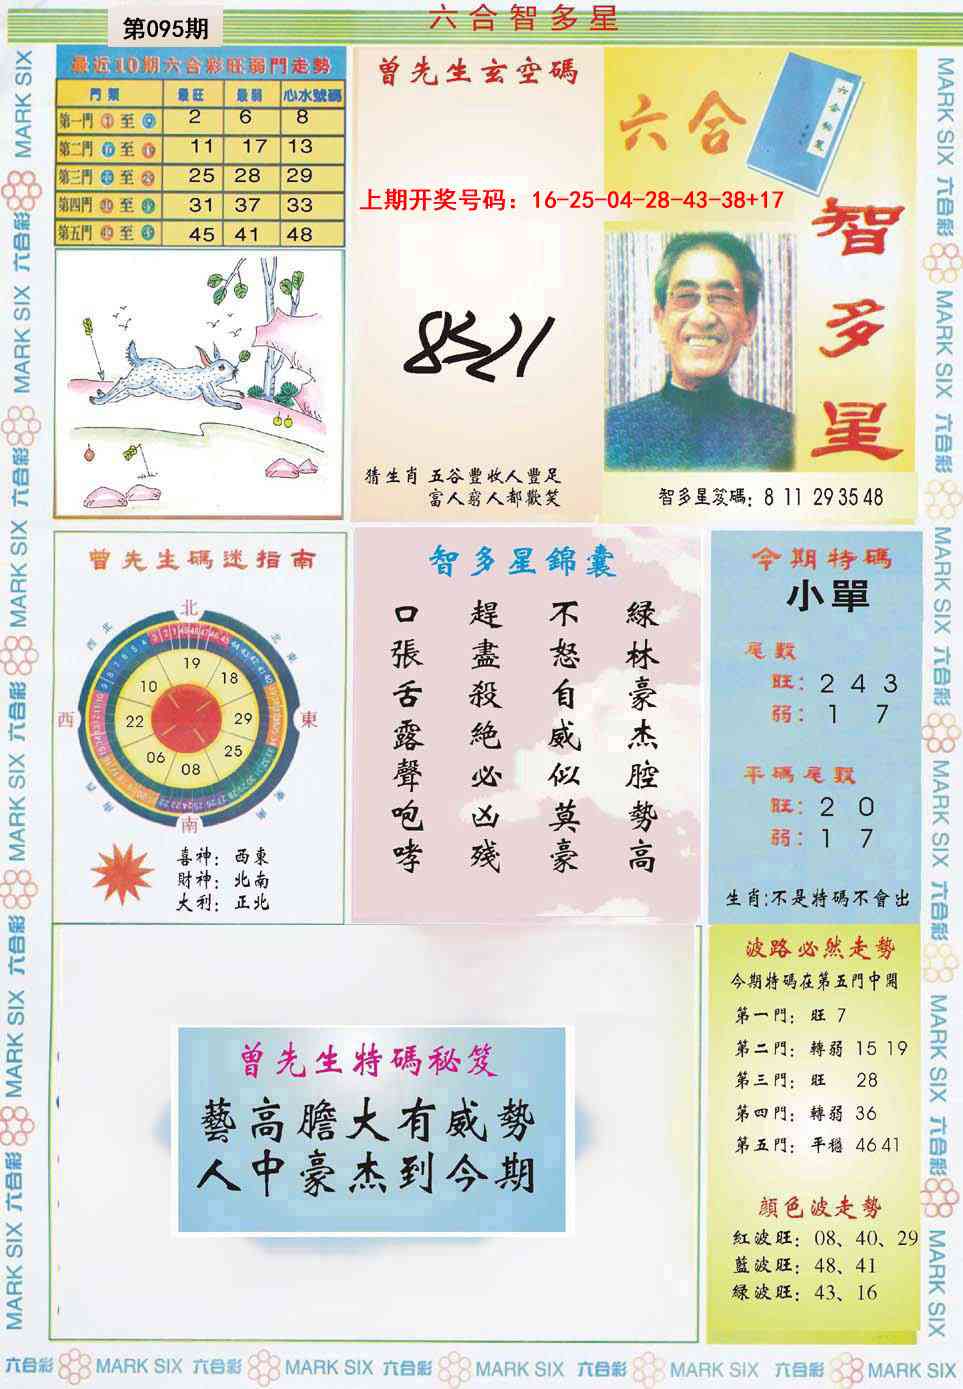 第095期
六合智多星
最近10期六合彩旺弱門走勢
門類 最旺 最弱 心水號碼
第一門 至 2 6 8
第二門 至 11 17 13
第三門 至 25 28 29
第四門 至 31 37 33
第五門 至 45 41 48
曾先生玄空碼
上期开奖号码：16-25-04-28-43-38+17
猜生肖 五谷豐收人豐足
富人窮人都歡笑
六合
智
多
星
智多星笈碼：8 11 29 35 48
曾先生碼迷指南
北
西北
東北
西
東
西南
東南
南
19
18
29
25
08
06
22
10
喜神：西東
財神：北南
大利：正北
智多星錦囊
綠林豪杰腔勢高
不怒自威似莫豪
趕盡殺絕必凶殘
口張舌露聲咆哮
今期特碼
小單
尾數
旺：2 4 3
弱：1 7
平碼尾數
旺：2 0
弱：1 7
生肖:不是特碼不會出
曾先生特碼秘笈
藝高膽大有威勢
人中豪杰到今期
波路必然走勢
今期特碼在第五門中開
第一門：旺 7
第二門：轉弱 15 19
第三門：旺 28
第四門：轉弱 36
第五門：平穩 46 41
顏色波走勢
紅波旺：08、40、29
藍波旺：48、41
綠波旺：43、16
MARK SIX 六合彩 MARK SIX 六合彩 MARK SIX 六合彩 MARK SIX 六合彩 MARK SIX 六合彩 MARK SIX
MARK SIX 六合彩 MARK SIX 六合彩 MARK SIX 六合彩 MARK SIX 六合彩 MARK SIX 六合彩 MARK SIX
六合彩 MARK SIX 六合彩 MARK SIX 六合彩 MARK SIX 六合彩 MARK SIX 六合彩 MARK SIX